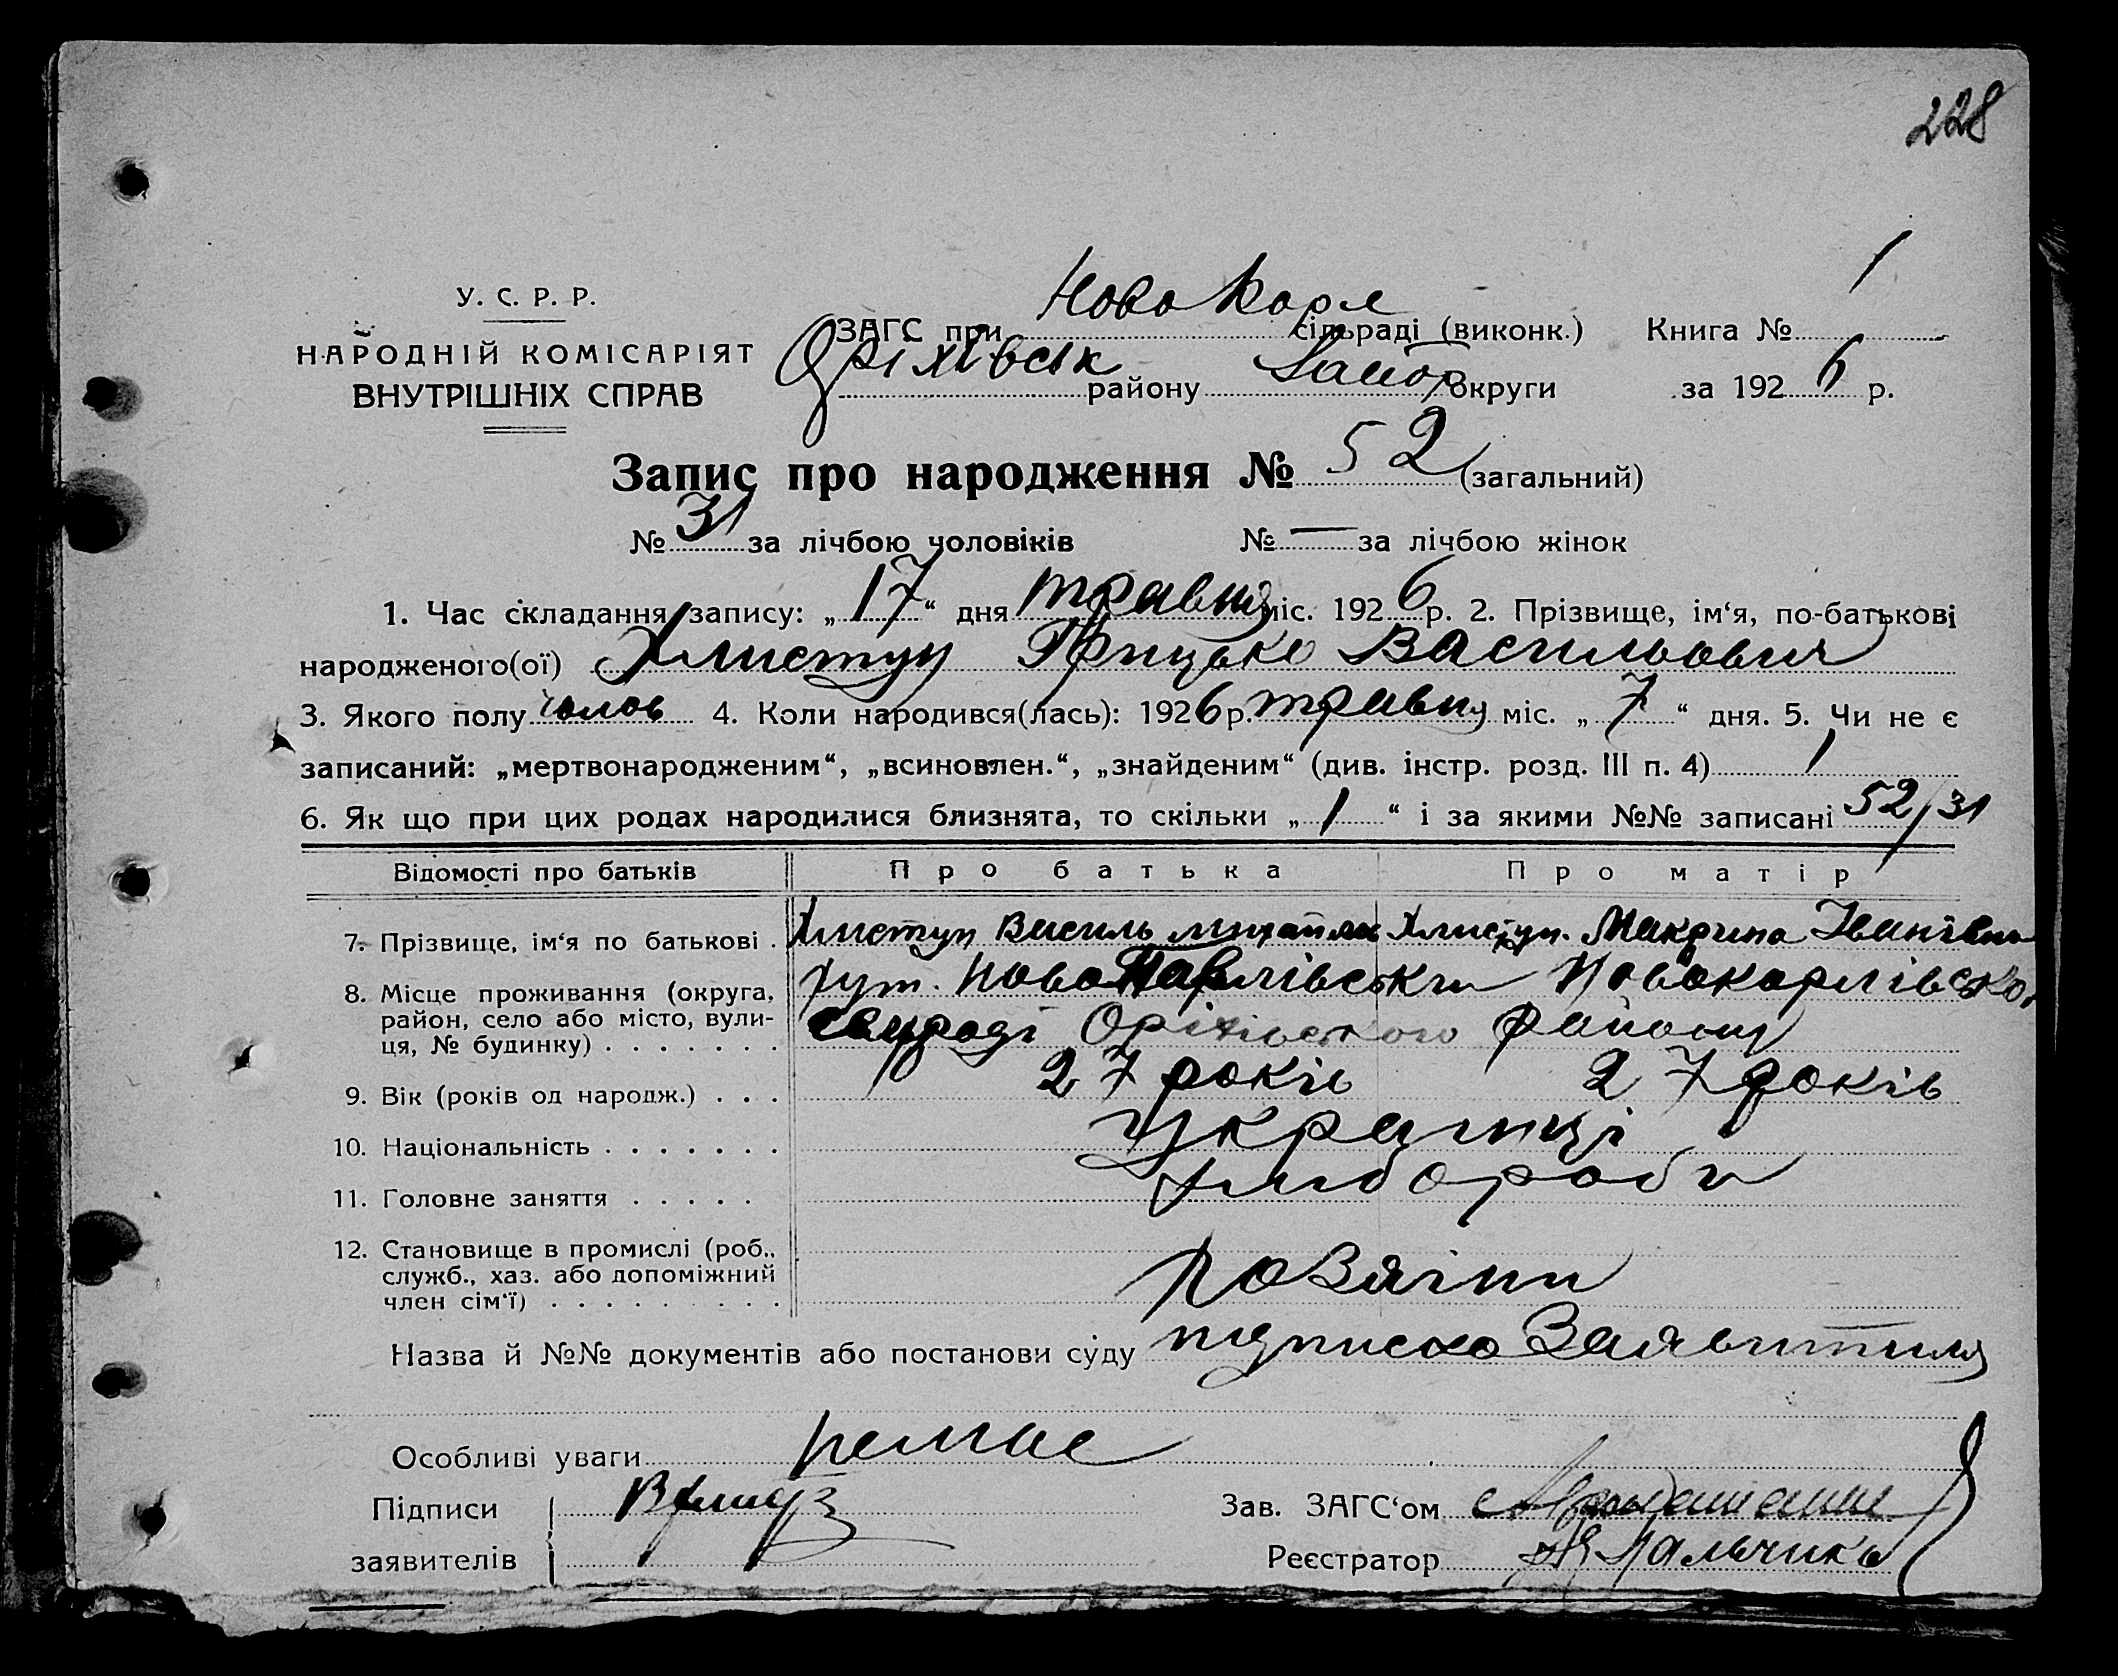 228
У. С. Р. Р.
НАРОДНІЙ КОМІСАРІЯТ
ВНУТРІШНІХ СПРАВ
ЗАГС при Ново Карл сільраді (виконк.) Книга № 1
Оріхівськ району Запор округи за 1926 р.
Запис про народження № 52 (загальний)
№ 31 за лічбою чоловіків № — за лічбою жінок
1. Час складання запису: „17“ дня травня міс. 1926 р. 2. Прізвище, ім‘я, по-батькові
народженого(ої) Хлистун Грицько Васильович
3. Якого полу чолов 4. Коли народився(лась): 1926 р. травня міс. „7“ дня. 5. Чи не є
записаний: „мертвонародженим“, „всиновлен.“, „знайденим“ (див. інстр. розд. III п. 4) /
6. Як що при цих родах народилися близнята, то скільки „/“ і за якими №№ записані 52/31
Відомості про батьків Про батька Про матір
7. Прізвище, ім‘я по батькові . Хлистун Василь Хлистун. Макрина Іванівна
8. Місце проживання (округа, хут. Ново Новокарлівської
район, село або місто, вули- Оріхівського Району
ця, № будинку) . . . . . . .
9. Вік (років од народж.) . . . 27 років 27 років
10. Національність . . . . . . . Українці
11. Головне заняття . . . . . Хлібороби
12. Становище в промислі (роб.,
служб., хаз. або допоміжний Хозяіни
член сім‘ї) . . . . . . . . .
Назва й №№ документів або постанови суду підписка Заявителя
Особливі уваги немає
Підписи Зав. ЗАГС‘ом
заявителів Реєстратор